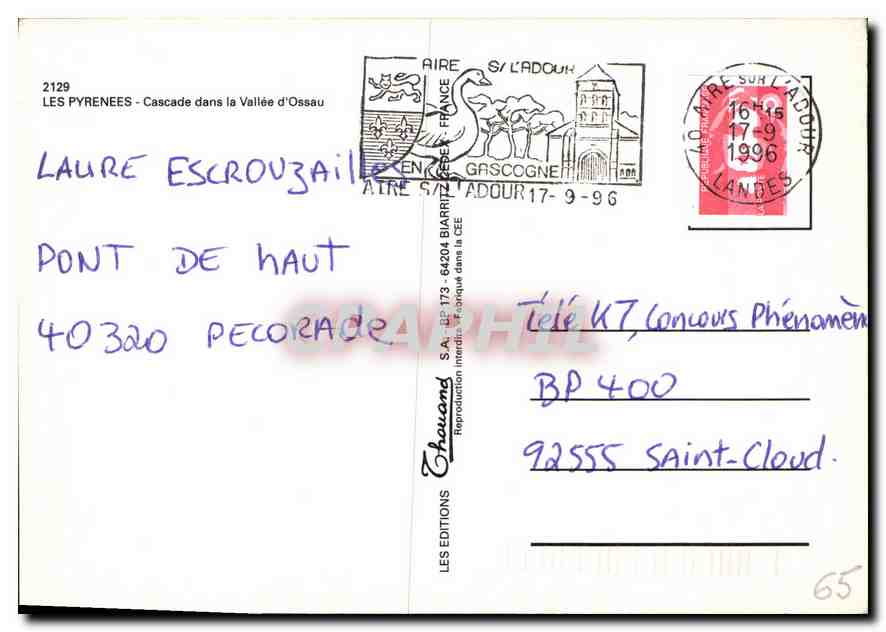 2129
LES PYRENEES - Cascade dans la Vallée d'Ossau
LAURE ESCROUZAILLES
PONT DE HAUT
40320 PECORADE
AIRE S/ L'ADOUR
EN GASCOGNE
AIRE S/ L'ADOUR 17-9-96
40 AIRE SUR L'ADOUR
16H15
17-9
1996
LANDES
REPUBLIQUE FRANC
LES EDITIONS Thouand S.A. BP 173 - 64204 BIARRITZ CEDEX FRANCE
Reproduction interdite - Fabriqué dans la CEE
CPAPHIL
Télé K7, Concours Phénomèn
BP 400
92555 SAINT-Cloud.
65